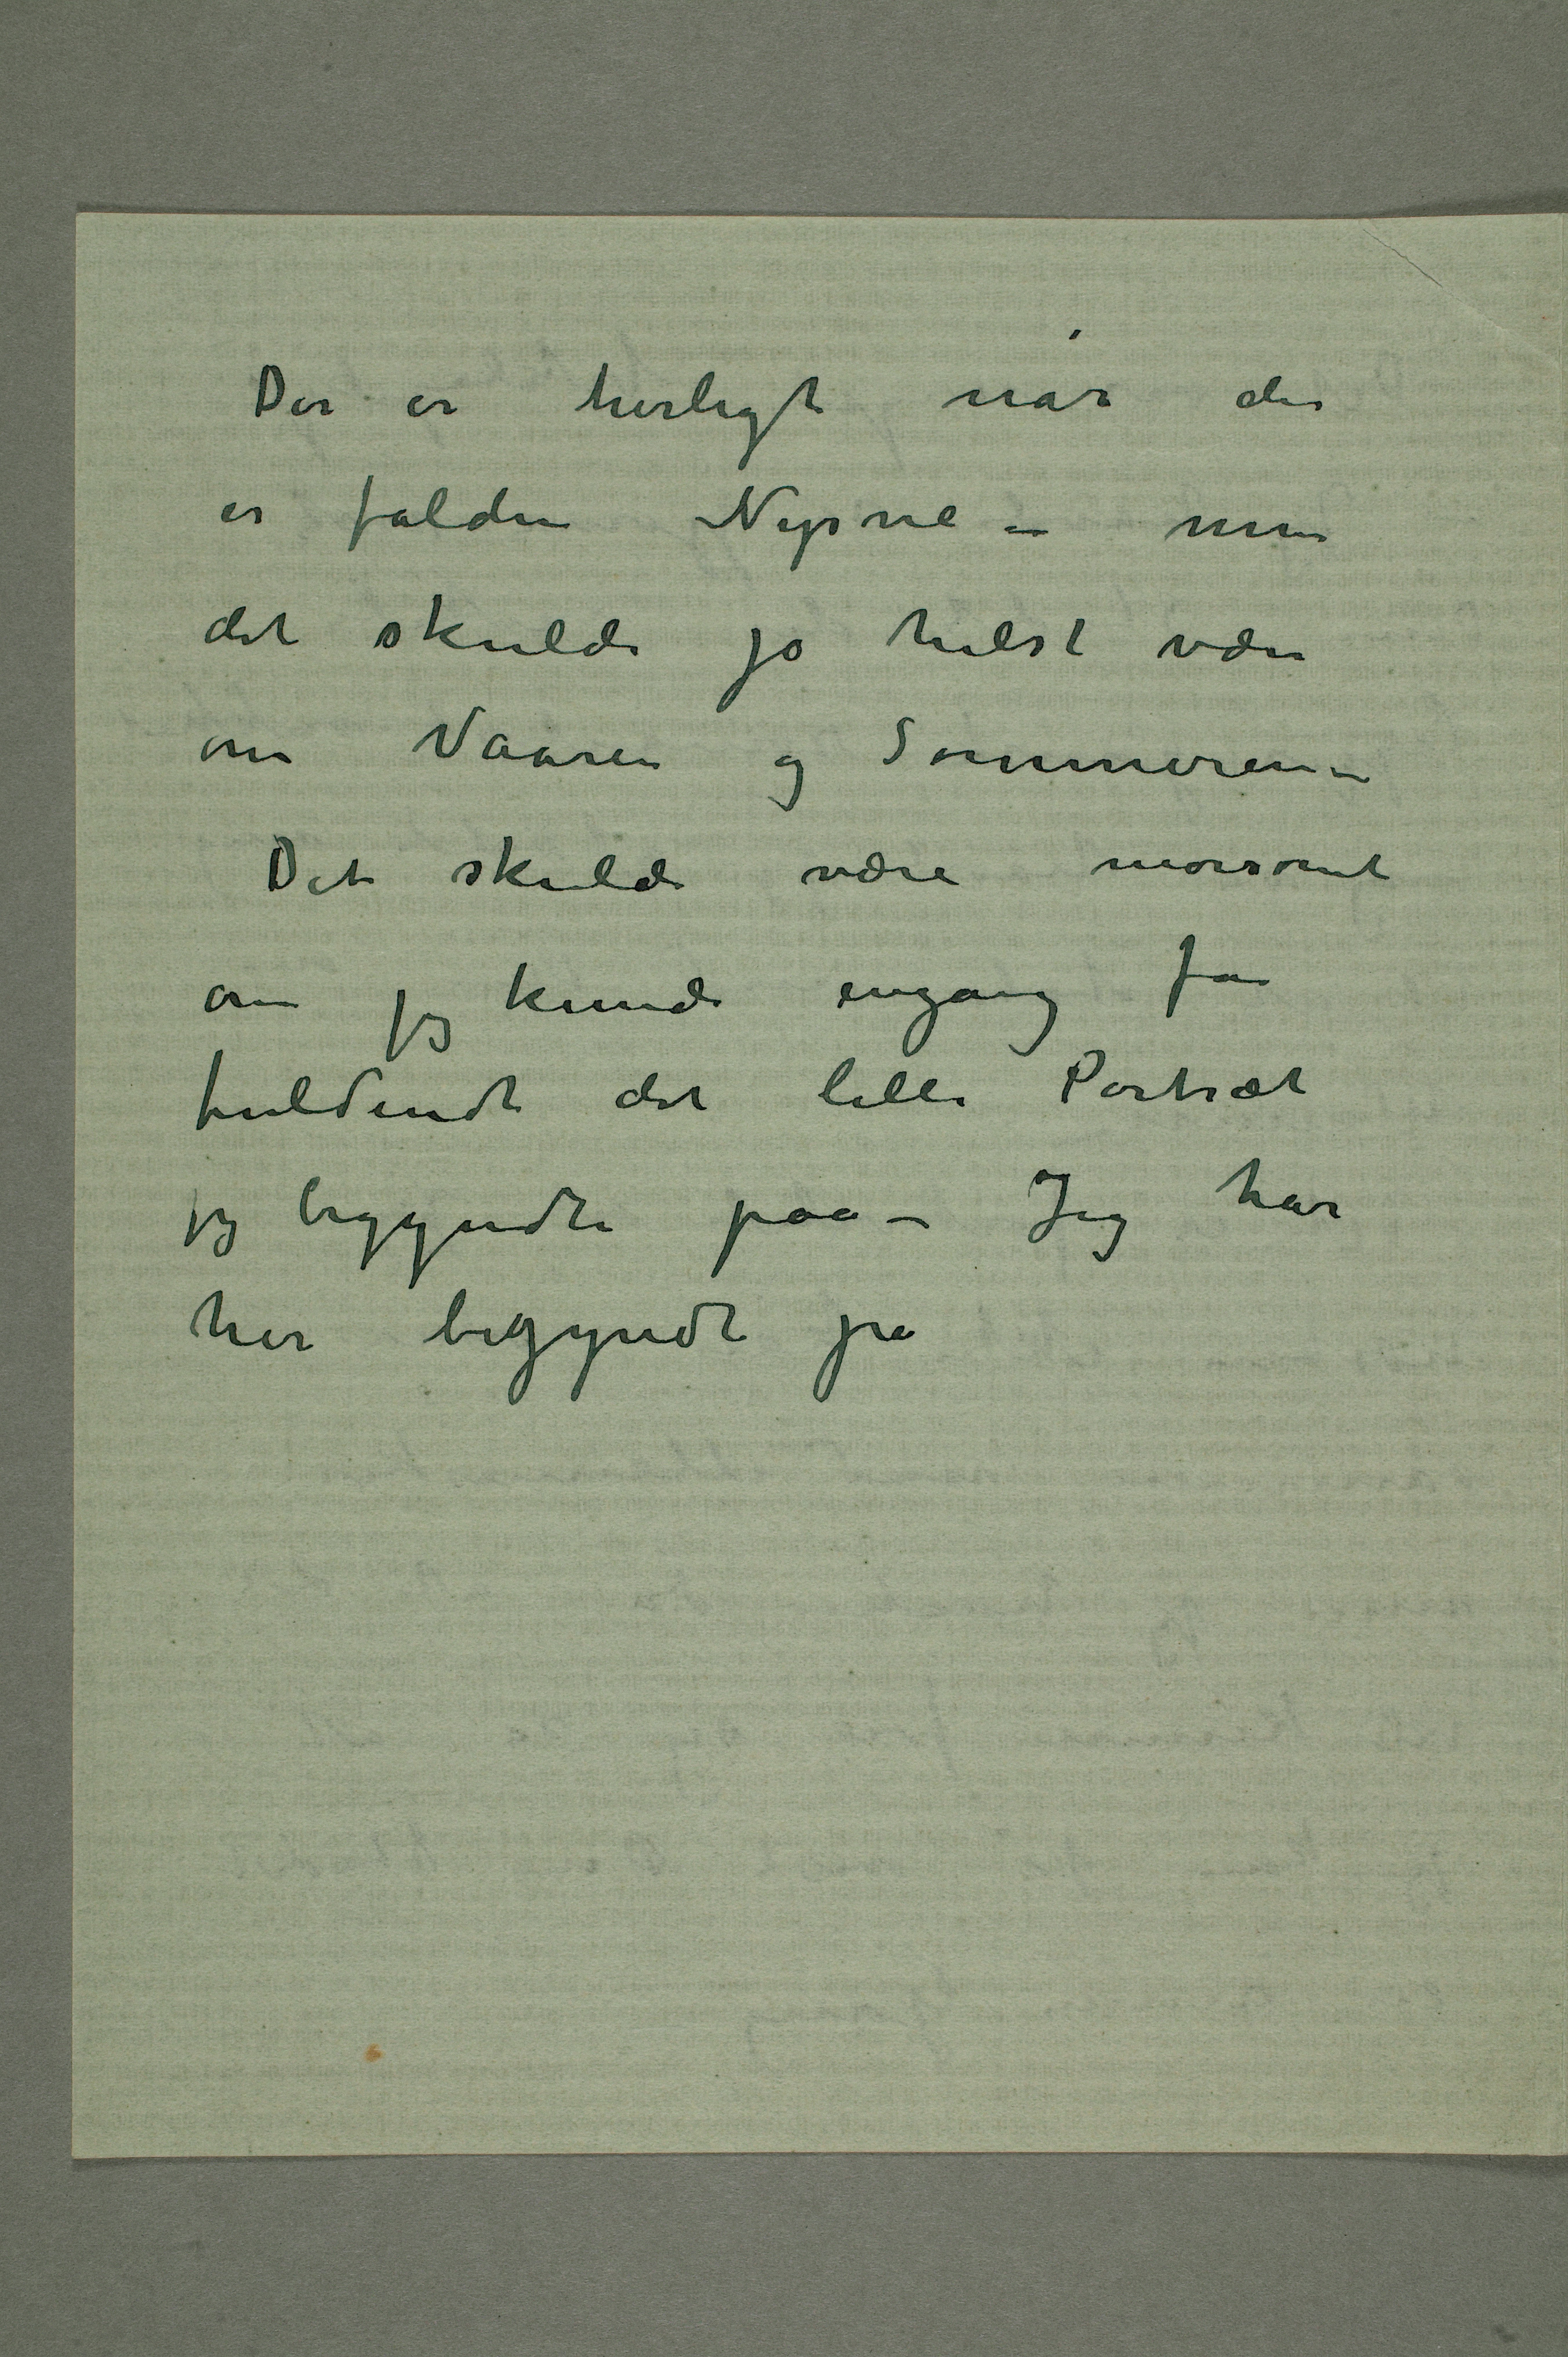 Der er herligt når der
er falden Nysne – men
det skulde jo helst være
om Vaaren og Sommeren –
Det skulde være morsomt
om jeg kunde engang faa
fuldendt det lille Portræt
jeg begyndte paa – Jeg har
her begyndt pa